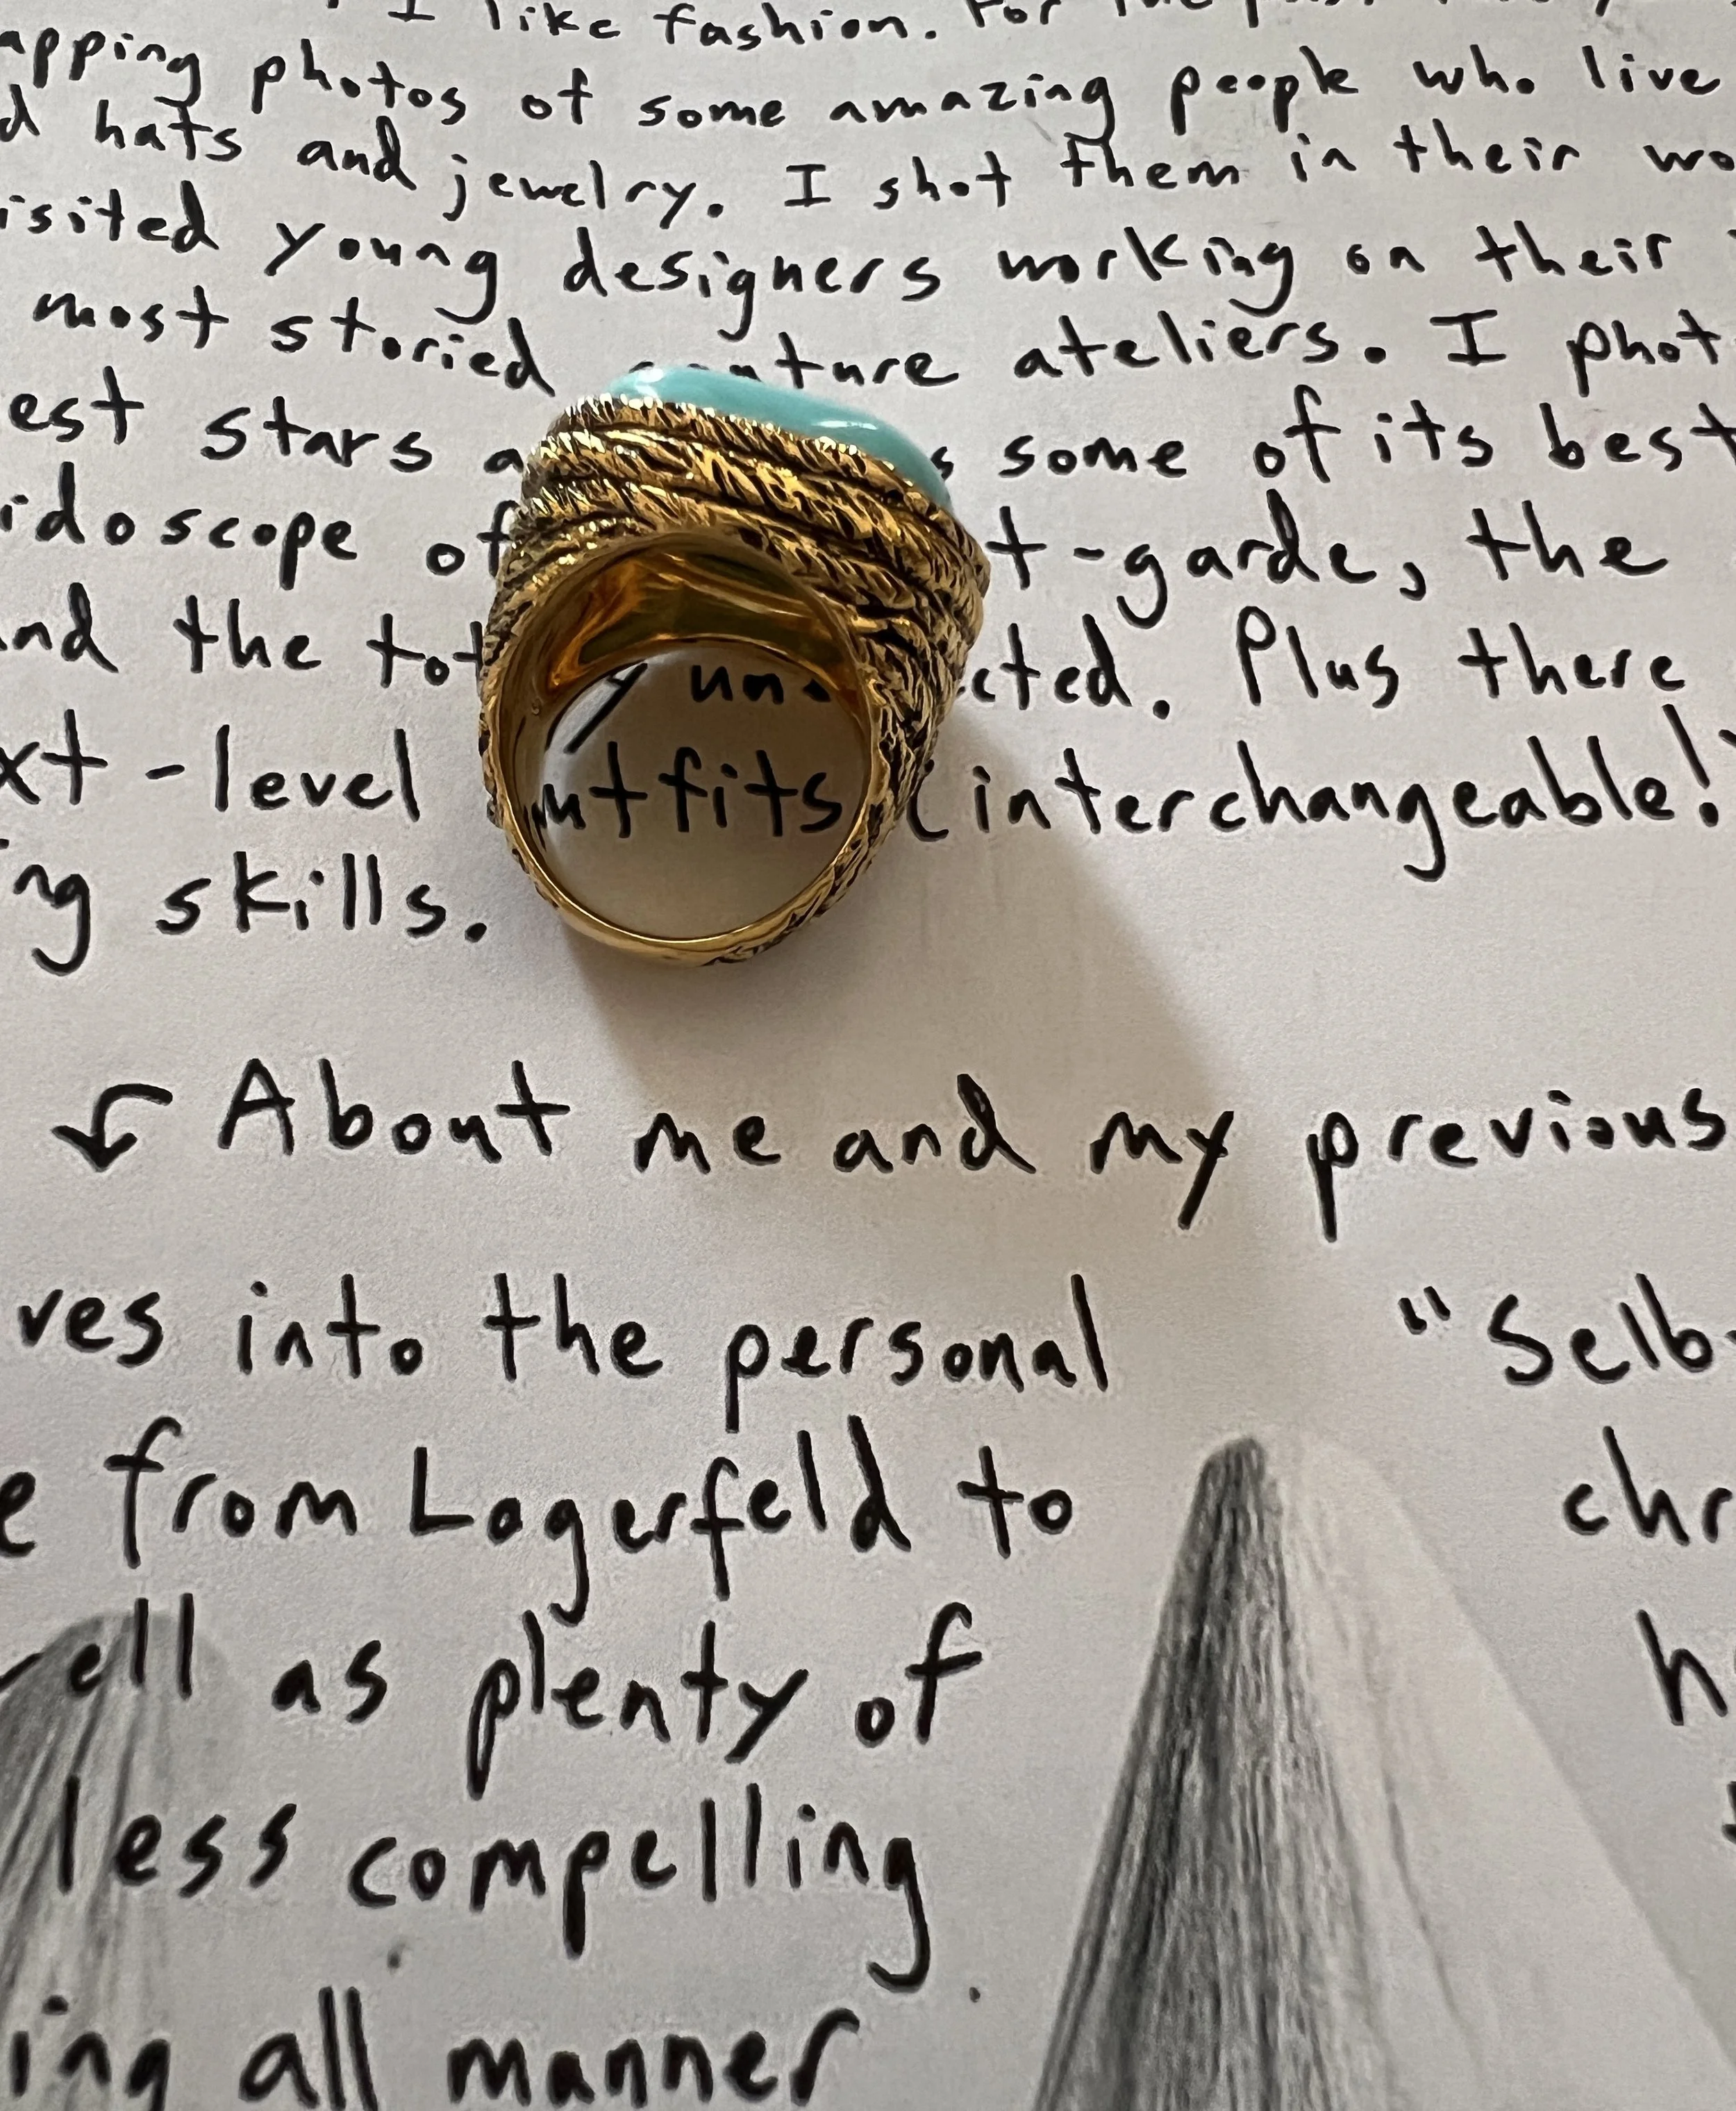 I like fashion. For
apping photos of some amazing people who live
d hats and jewelry. I shot them in their wo
isited young designers working on their
most storied couture ateliers. I phot
est stars a s some of its best
idoscope of t-garde, the
nd the tot y un cted. Plus there
xt-level outfits (interchangeable!
ng skills.
About me and my previous
ves into the personal
"Selb
e from Lagerfeld to
chr
ell as plenty of
h
less compelling
ing all manner